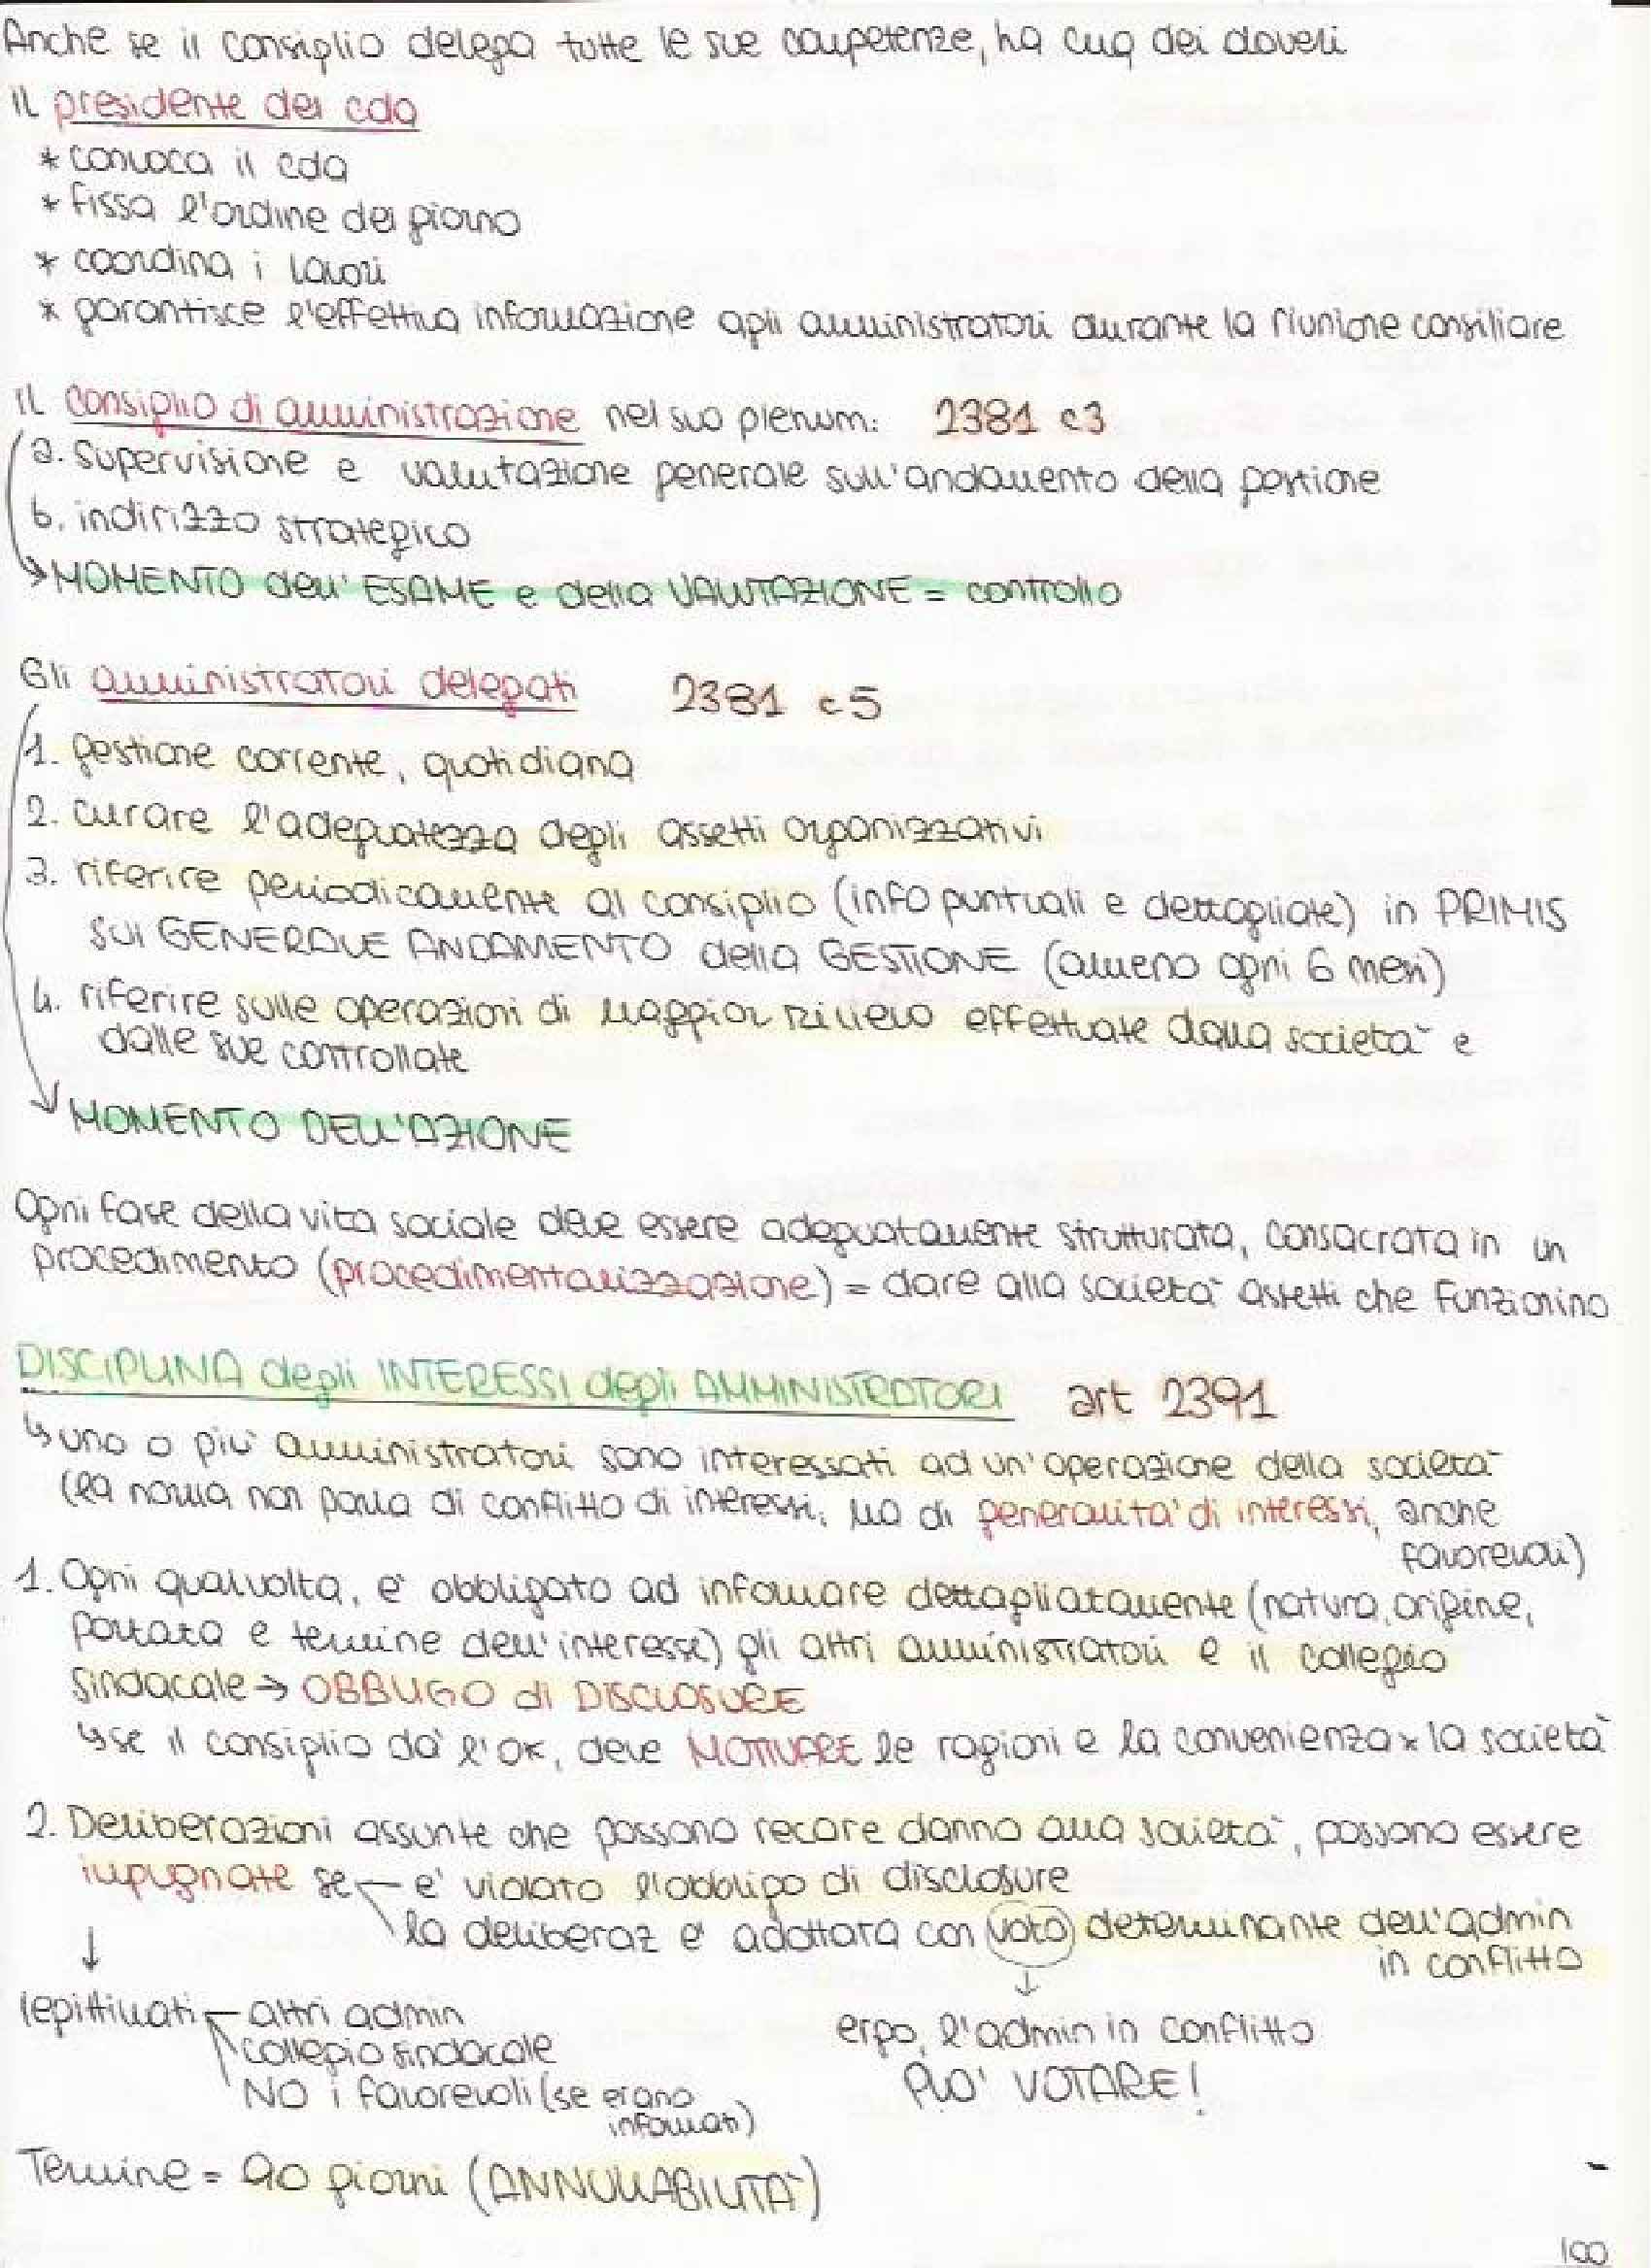 Anche se il consiglio delega tutte le sue competenze, ha cmq dei doveri
IL presidente del cda
* convoca il cda
* fissa l'ordine del giorno
* coordina i lavori
* garantisce l'effettiva informazione agli amministratori durante la riunione consiliare
IL consiglio di amministrazione nel suo plenum: 2381 c3
a. supervisione e valutazione generale sull'andamento della gestione
b. indirizzo strategico
↳ MOMENTO dell'ESAME e della VALUTAZIONE = controllo
Gli amministratori delegati 2381 c5
1. gestione corrente, quotidiana
2. curare l'adeguatezza degli assetti organizzativi
3. riferire periodicamente al consiglio (info puntuali e dettagliate) in PRIMIS
sul GENERALE ANDAMENTO della GESTIONE (almeno ogni 6 mesi)
4. riferire sulle operazioni di maggior rilievo effettuate dalla società e
dalle sue controllate
↓ MOMENTO DELL'AZIONE
Ogni fase della vita sociale deve essere adeguatamente strutturata, consacrata in un
procedimento (procedimentalizzazione) = dare alla società assetti che funzionino
DISCIPLINA degli INTERESSI degli AMMINISTRATORI art 2391
↳ uno o più amministratori sono interessati ad un'operazione della società
(la norma non parla di conflitto di interessi, ma di generalità di interessi, anche
favorevoli)
1. Ogni qualvolta, è obbligato ad informare dettagliatamente (natura, origine,
portata e termine dell'interesse) gli altri amministratori e il collegio
sindacale → OBBLIGO di DISCLOSURE
↳ se il consiglio dà l'ok, deve MOTIVARE le ragioni e la convenienza x la società
2. Deliberazioni assunte che possono recare danno alla società, possono essere
impugnate se è violato l'obbligo di disclosure
la deliberaz è adottata con voto determinante dell'admin
in conflitto
↓
legittimati altri admin
collegio sindacale
NO i favorevoli (se erano
informati)
↓
ergo, l'admin in conflitto
PUO' VOTARE!
Termine = 90 giorni (ANNULLABILITÀ)
100